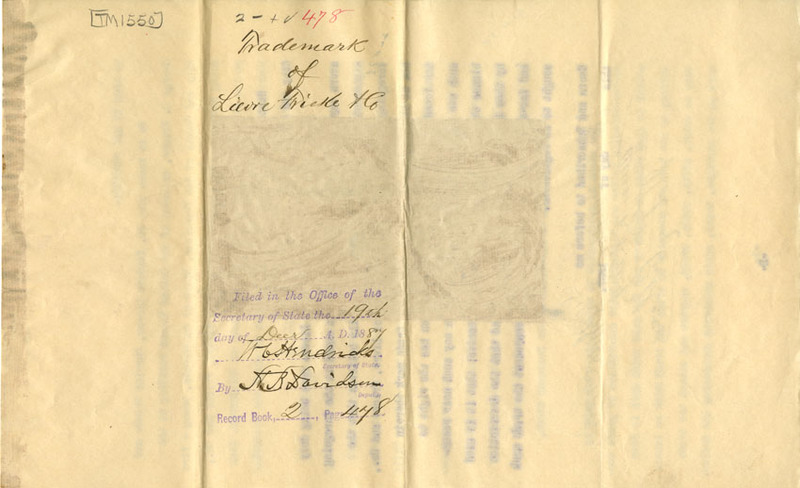 TM1550
478
Trademark
of
Lievre Fricke & Co
Filed in the Office of the
Secretary of State the 19th
day of Decr A. D. 1887
W C Hendricks
Secretary of State
By Davidson
Deputy
Record Book, 2, Page 478